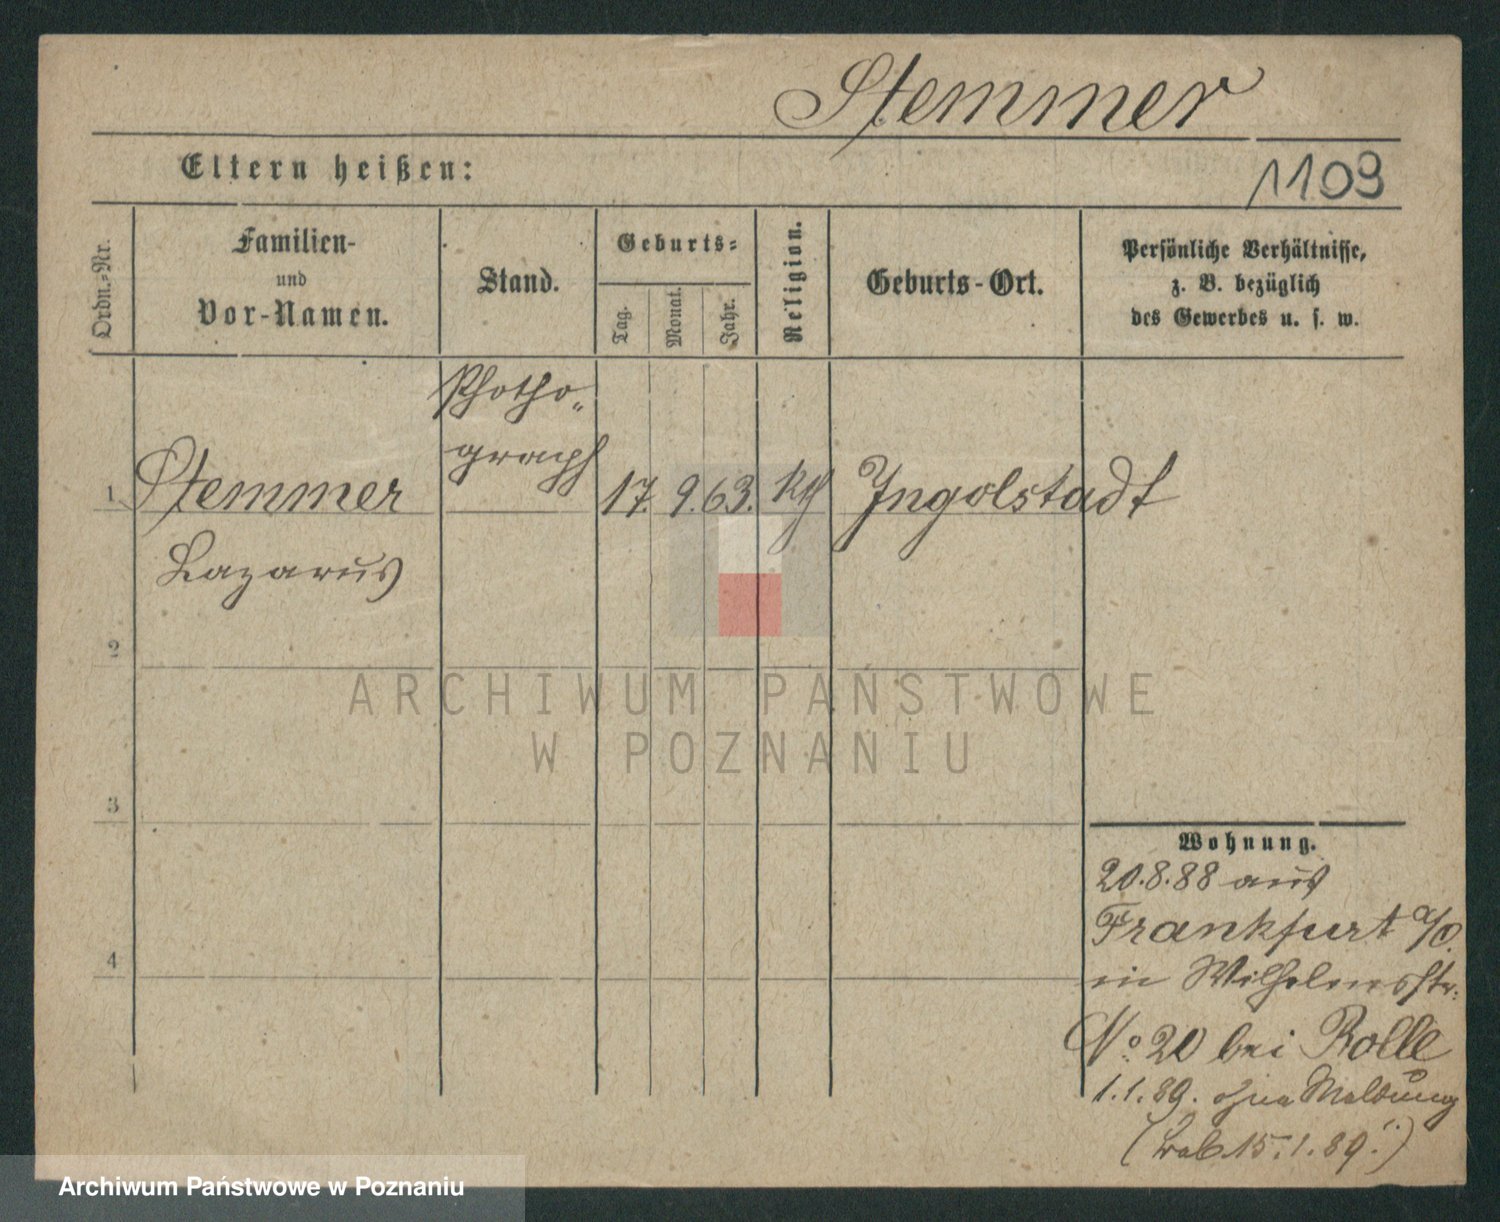 Stemmer
Eltern heißen:
1109
Ordn.-Nr.
Familien-
und
Vor-Namen.
Stand.
Geburts-
Tag.
Monat.
Jahr.
Religion.
Geburts-Ort.
Persönliche Verhältnisse,
z. B. bezüglich
des Gewerbes u. s. w.
Photho-
graph
1 Stemmer 17. 9. 63. Ingolstadt
Lazarus
2
ARCHIWUM PAŃSTWOWE
W POZNANIU
3
Wohnung.
20.8.88 aus
Frankfurt a/O.
4
in Wilhelmsstr.
No 20 bei Rolle
1.1.89. ohne Meldung
15.1.89.)
Archiwum Państwowe w Poznaniu